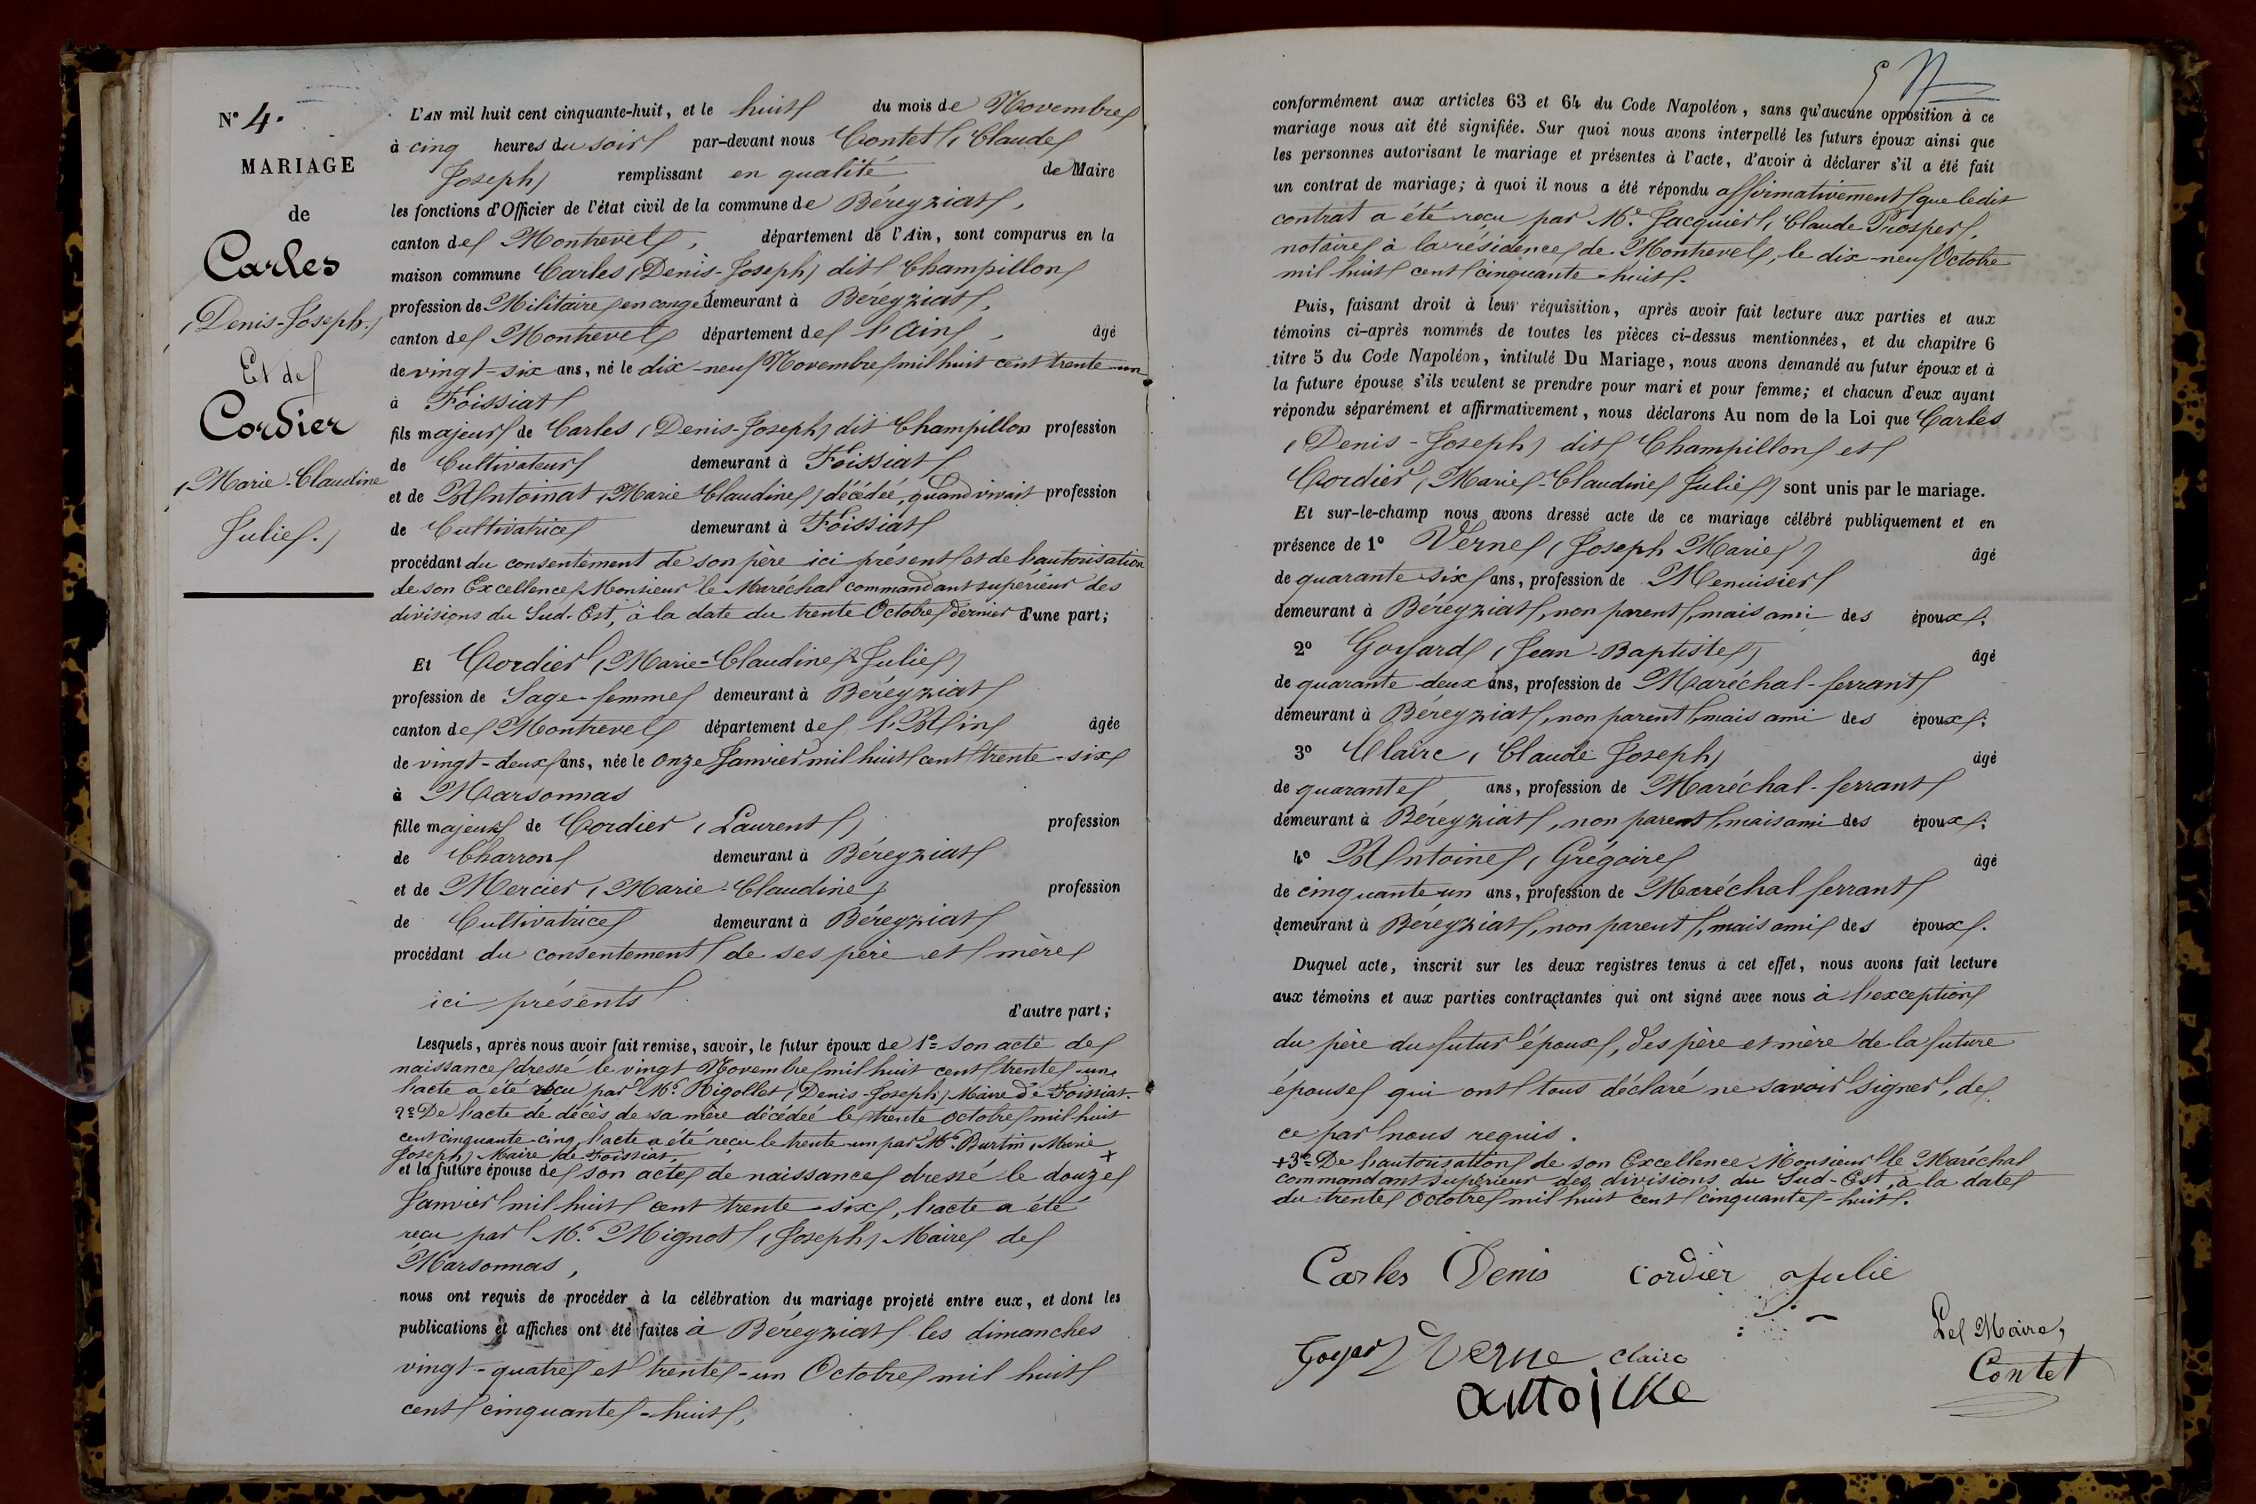 N° 4.
MARIAGE
de
Carles
(Denis-Joseph.)
Et de
Cordier
(Marie-Claudine
Julie.)
L'AN mil huit cent cinquante-huit, et le huit du mois de Novembre
à cinq heures du soir par-devant nous Contet (Claude
Joseph) remplissant en qualité de Maire
les fonctions d'Officier de l'état civil de la commune de Béreyziat,
canton de Montrevel, département de l'Ain, sont comparus en la
maison commune Carles (Denis-Joseph) dit Champillon
profession de Militaire en congé demeurant à Béreyziat,
canton de Montrevel département de l'Ain, âgé
de vingt-six ans, né le dix-neuf Novembre mil huit cent trente-un
à Foissiat
fils majeur de Carles (Denis-Joseph) dit Champillon profession
de Cultivateur demeurant à Foissiat
et de Antoinat (Marie Claudine) décédée, quand vivait profession
de Cultivatrice demeurant à Foissiat
procédant du consentement de son père ici présent et de l'autorisation
de son Excellence Monsieur le Maréchal commandant supérieur des
divisions du Sud-Est, à la date du trente Octobre dernier d'une part;
Et Cordier (Marie-Claudine-Julie)
profession de Sage-femme demeurant à Béreyziat
canton de Montrevel département de l'Ain âgée
de vingt-deux ans, née le onze Janvier mil huit cent trente-six
à Marsonnas
fille majeure de Cordier (Laurent) profession
de Charron demeurant à Béreyziat
et de Mercier (Marie-Claudine) profession
de Cultivatrice demeurant à Béreyziat
procédant du consentement de ses père et mère
ici présents
d'autre part;
Lesquels, après nous avoir fait remise, savoir, le futur époux de 1° son acte de
naissance dressé le vingt Novembre mil huit cent trente-un,
l'acte a été reçu par Mr. Rigollet (Denis-Joseph) Maire de Foissiat.
2° De l'acte de décès de sa mère décédée le trente octobre mil huit
cent cinquante-cinq, l'acte a été reçu le trente-un par Mr. Burtin (Marie
Joseph) Maire de Foissiat, +
et la future épouse de son acte de naissance dressé le douze
Janvier mil huit cent trente-six, l'acte a été
reçu par Mr. Mignot (Joseph) Maire de
Marsonnas,
nous ont requis de procéder à la célébration du mariage projeté entre eux, et dont les
publications et affiches ont été faites à Béreyziat les dimanches
vingt-quatre et trente-un Octobre mil huit
cent cinquante-huit,
5
conformément aux articles 63 et 64 du Code Napoléon, sans qu'aucune opposition à ce
mariage nous ait été signifiée. Sur quoi nous avons interpellé les futurs époux ainsi que
les personnes autorisant le mariage et présentes à l'acte, d'avoir à déclarer s'il a été fait
un contrat de mariage; à quoi il nous a été répondu affirmativement que ledit
contrat a été reçu par Me. Jacquier (Claude Prosper),
notaire à la résidence de Montrevel, le dix-neuf Octobre
mil huit cent cinquante-huit.
Puis, faisant droit à leur réquisition, après avoir fait lecture aux parties et aux
témoins ci-après nommés de toutes les pièces ci-dessus mentionnées, et du chapitre 6
titre 5 du Code Napoléon, intitulé Du Mariage, nous avons demandé au futur époux et à
la future épouse s'ils veulent se prendre pour mari et pour femme; et chacun d'eux ayant
répondu séparément et affirmativement, nous déclarons Au nom de la Loi que Carles
(Denis-Joseph) dit Champillon et
Cordier (Marie-Claudine Julie) sont unis par le mariage.
Et sur-le-champ nous avons dressé acte de ce mariage célébré publiquement et en
présence de 1° Verne (Joseph Marie) âgé
de quarante-six ans, profession de Menuisier
demeurant à Béreyziat, non parent, mais ami des époux;
2° Goyard (Jean-Baptiste) âgé
de quarante-deux ans, profession de Maréchal-ferrant
demeurant à Béreyziat, non parent, mais ami des époux;
3° Claire (Claude Joseph) âgé
de quarante ans, profession de Maréchal-ferrant
demeurant à Béreyziat, non parent, mais ami des époux;
4° Antoine (Grégoire) âgé
de cinquante-un ans, profession de Maréchal ferrant
demeurant à Béreyziat, non parent, mais ami des époux.
Duquel acte, inscrit sur les deux registres tenus à cet effet, nous avons fait lecture
aux témoins et aux parties contractantes qui ont signé avec nous à l'exception
du père du futur époux, des père et mère de la future
épouse qui ont tous déclaré ne savoir signer, de
ce par nous requis.
+3° De l'autorisation de son Excellence Monsieur le Maréchal
commandant supérieur des divisions du Sud-Est, à la date
du trente Octobre mil huit cent cinquante-huit.
Carles Denis cordier Julie
Goyard Verne Claire
antoine
Le Maire,
Contet